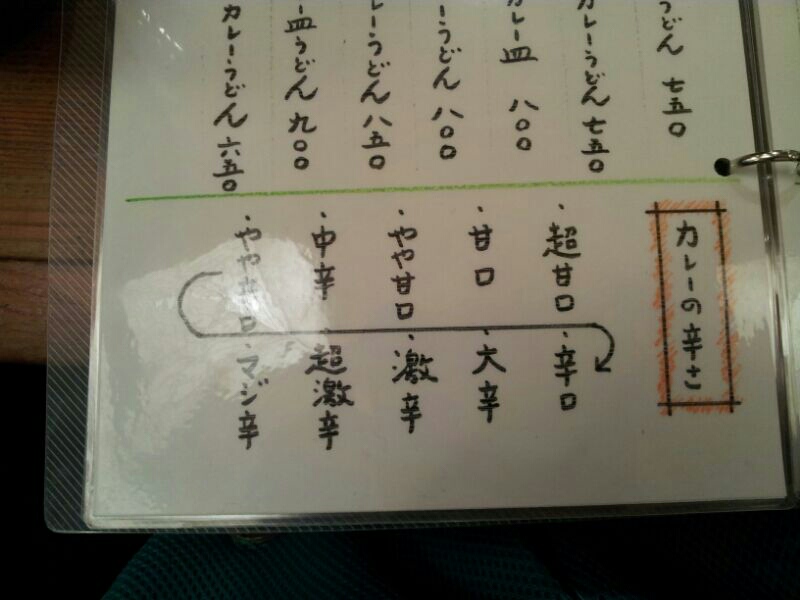 うどん 七五〇
カレーうどん 七五〇
カレー皿 八〇〇
ーうどん 八〇〇
レーうどん 八五〇
ー皿うどん 九〇〇
カレーうどん 六五〇
カレーの辛さ
・超甘口
・甘口
・やや甘口
・中辛
・やや辛口
・辛口
・大辛
・激辛
・超激辛
・マジ辛